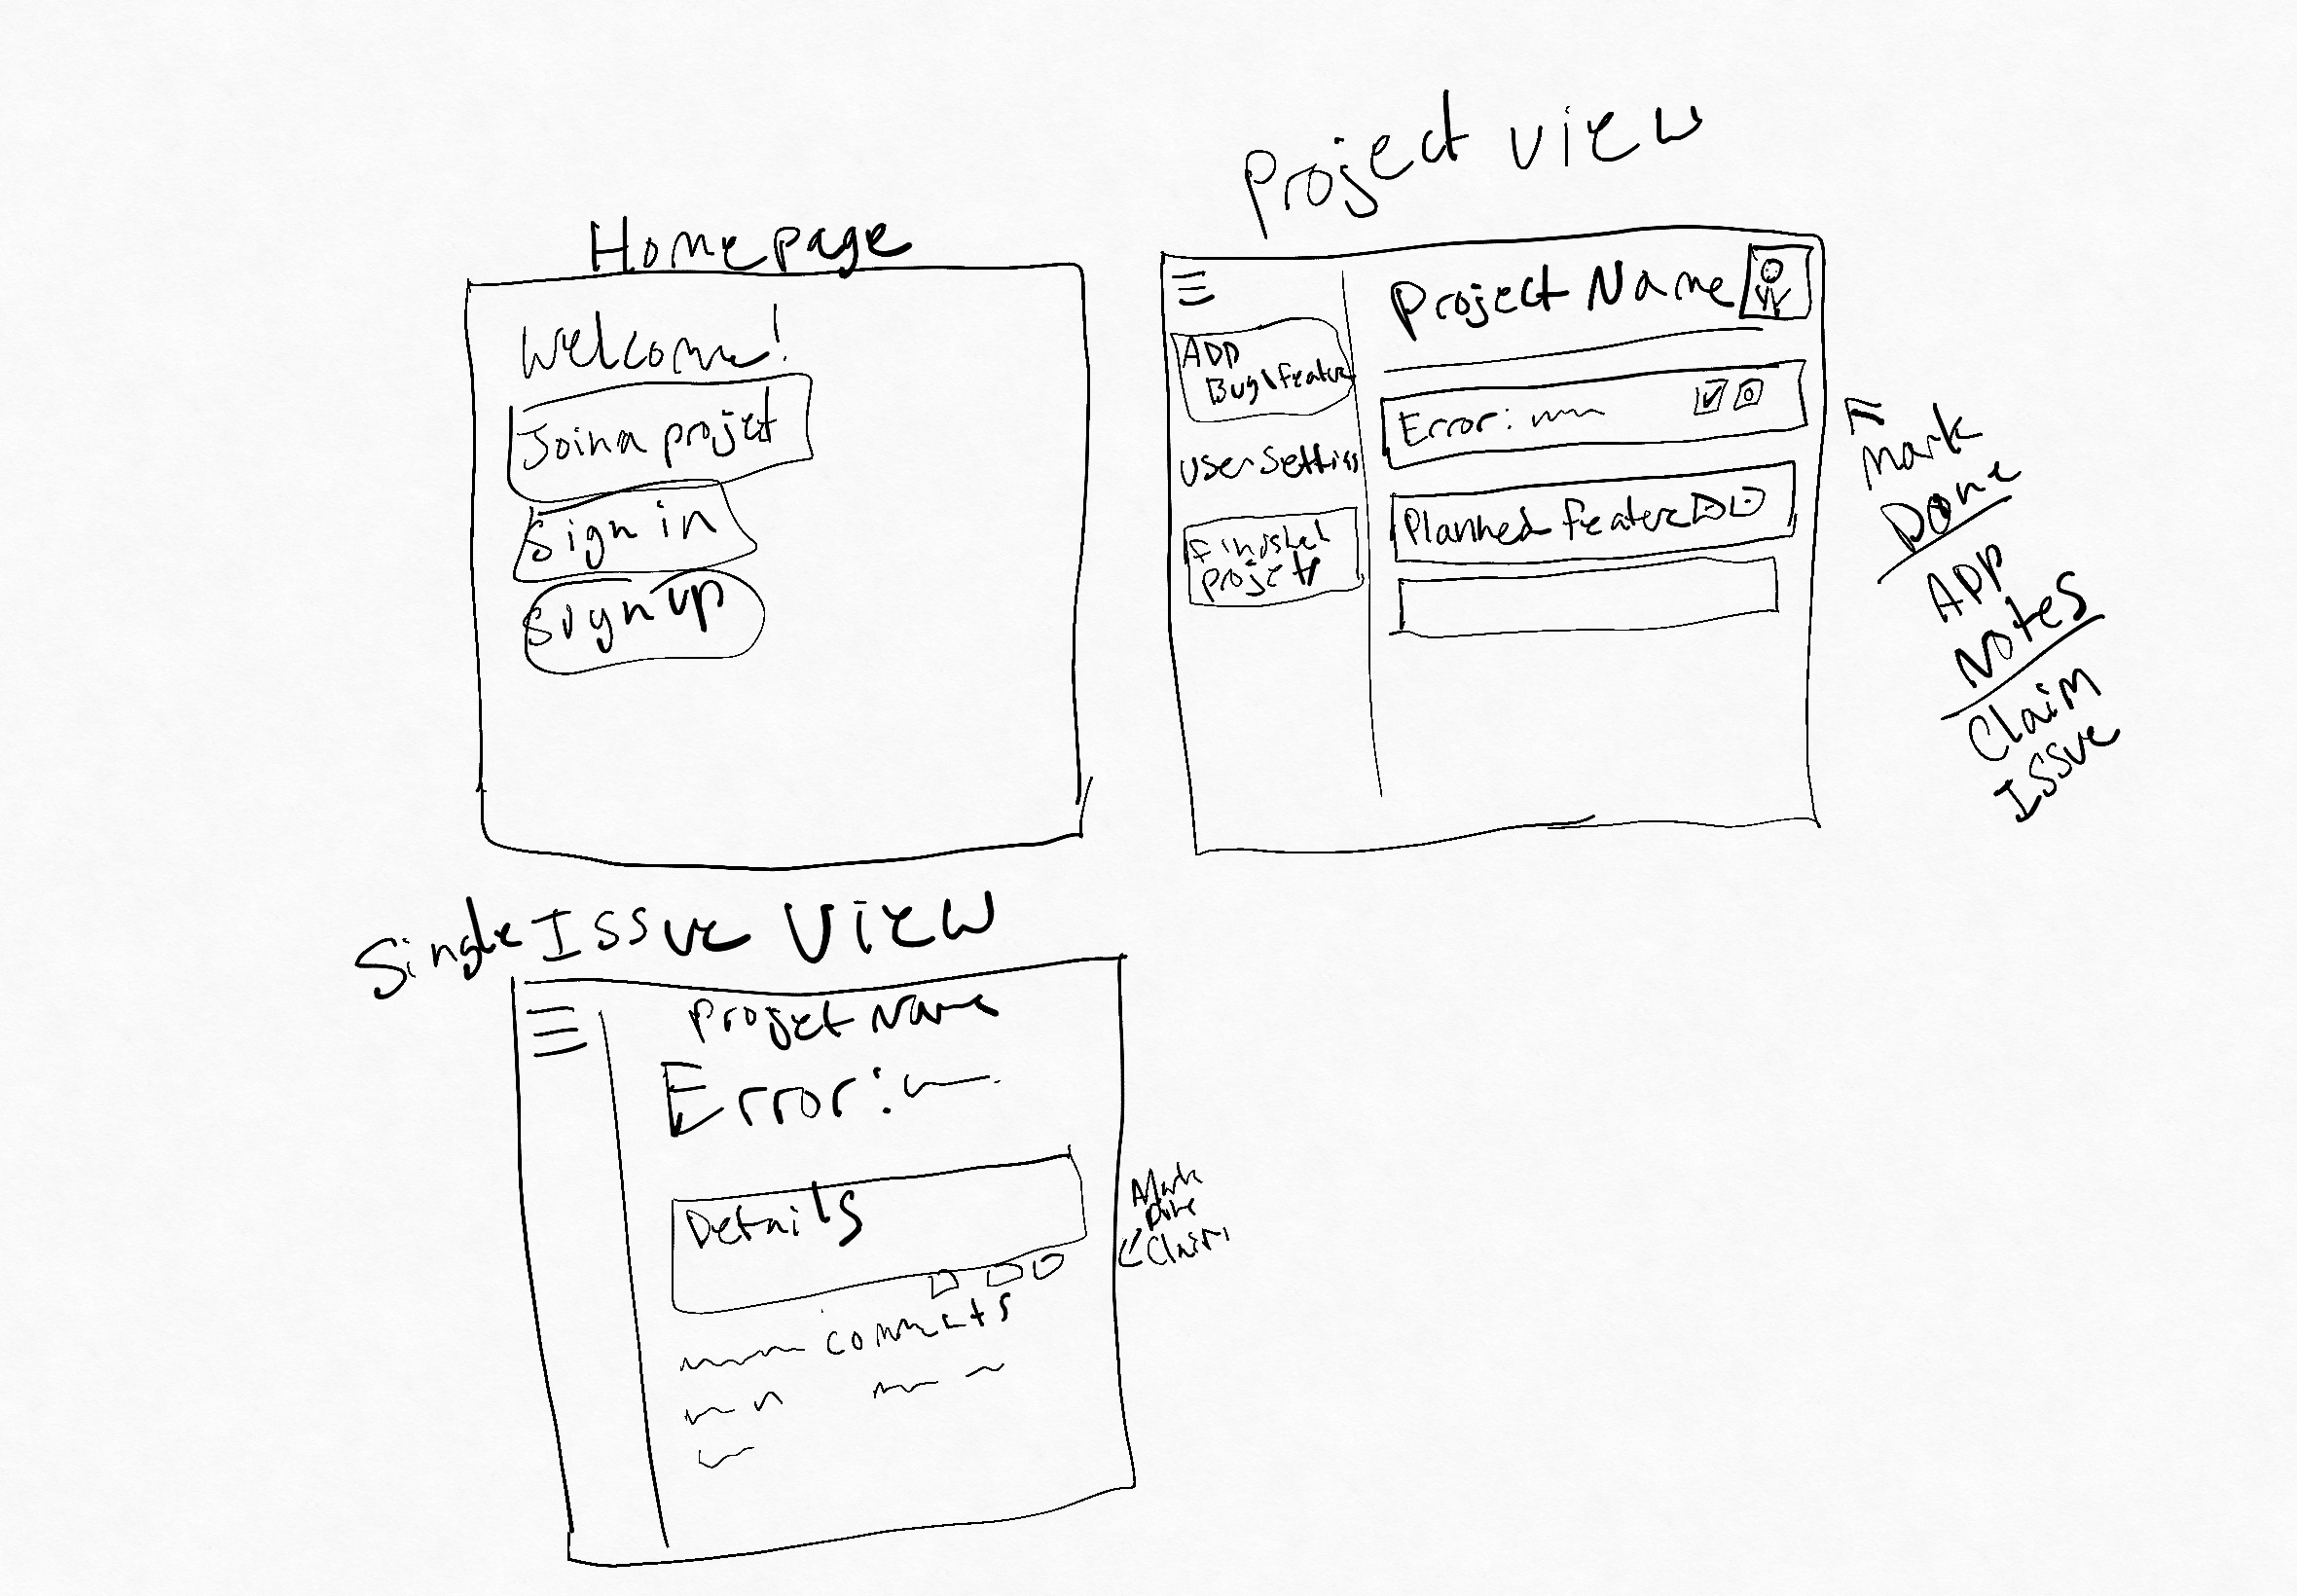 Homepage
Welcome!
Join a projet
Sign in
Sign up
Project view
Project Name
ADD
Bug\feature
User Settins
Finishel
projets
Error:
Planned feature
Mark
Done
ADD
Notes
Claim
Issue
Single Issue View
Projet Name
Error:
Details
comments
Mark
Done
Claim